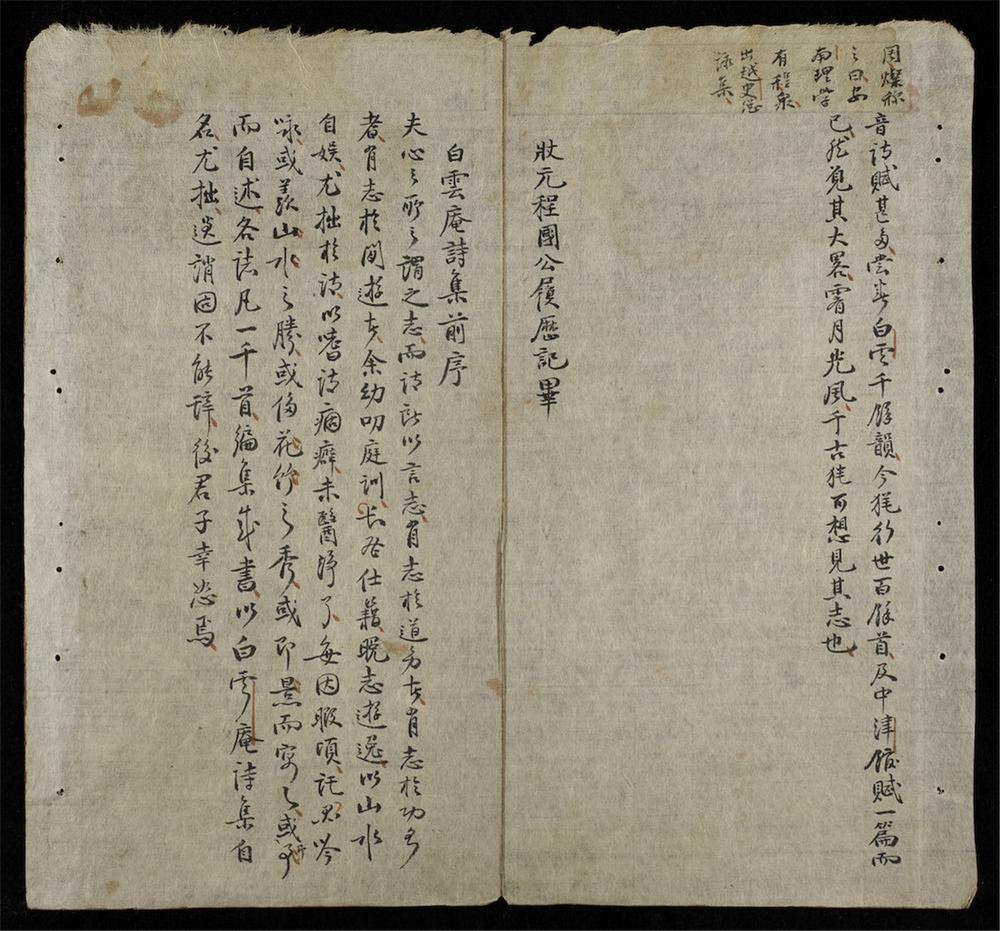 周燦称
之曰安
南理学
有程泉
出越史總
詠集
音詩賦甚多嘗著白雲千餘韻今猶行世百餘首及中津館賦一篇而
已然覓其大畧霽月光風千古猶可想見其志也
狀元程國公履歷記畢
白雲庵詩集前序
夫心之所之謂之志而詩所以言志有志於道旁者有志於功名
者有志於閒遊者余幼叨庭訓長登仕籍晚志遊逸以山水
自娛尤拙於詩以嗜詩痼癖未醫淨了每因暇頃託興吟
咏或羨山水之勝或侈花竹之秀或即景而寓之或事
而自述各誌凡一千首編集成書以白雲庵詩集自
名尤拙逸誚固不能辞後君子幸恕焉